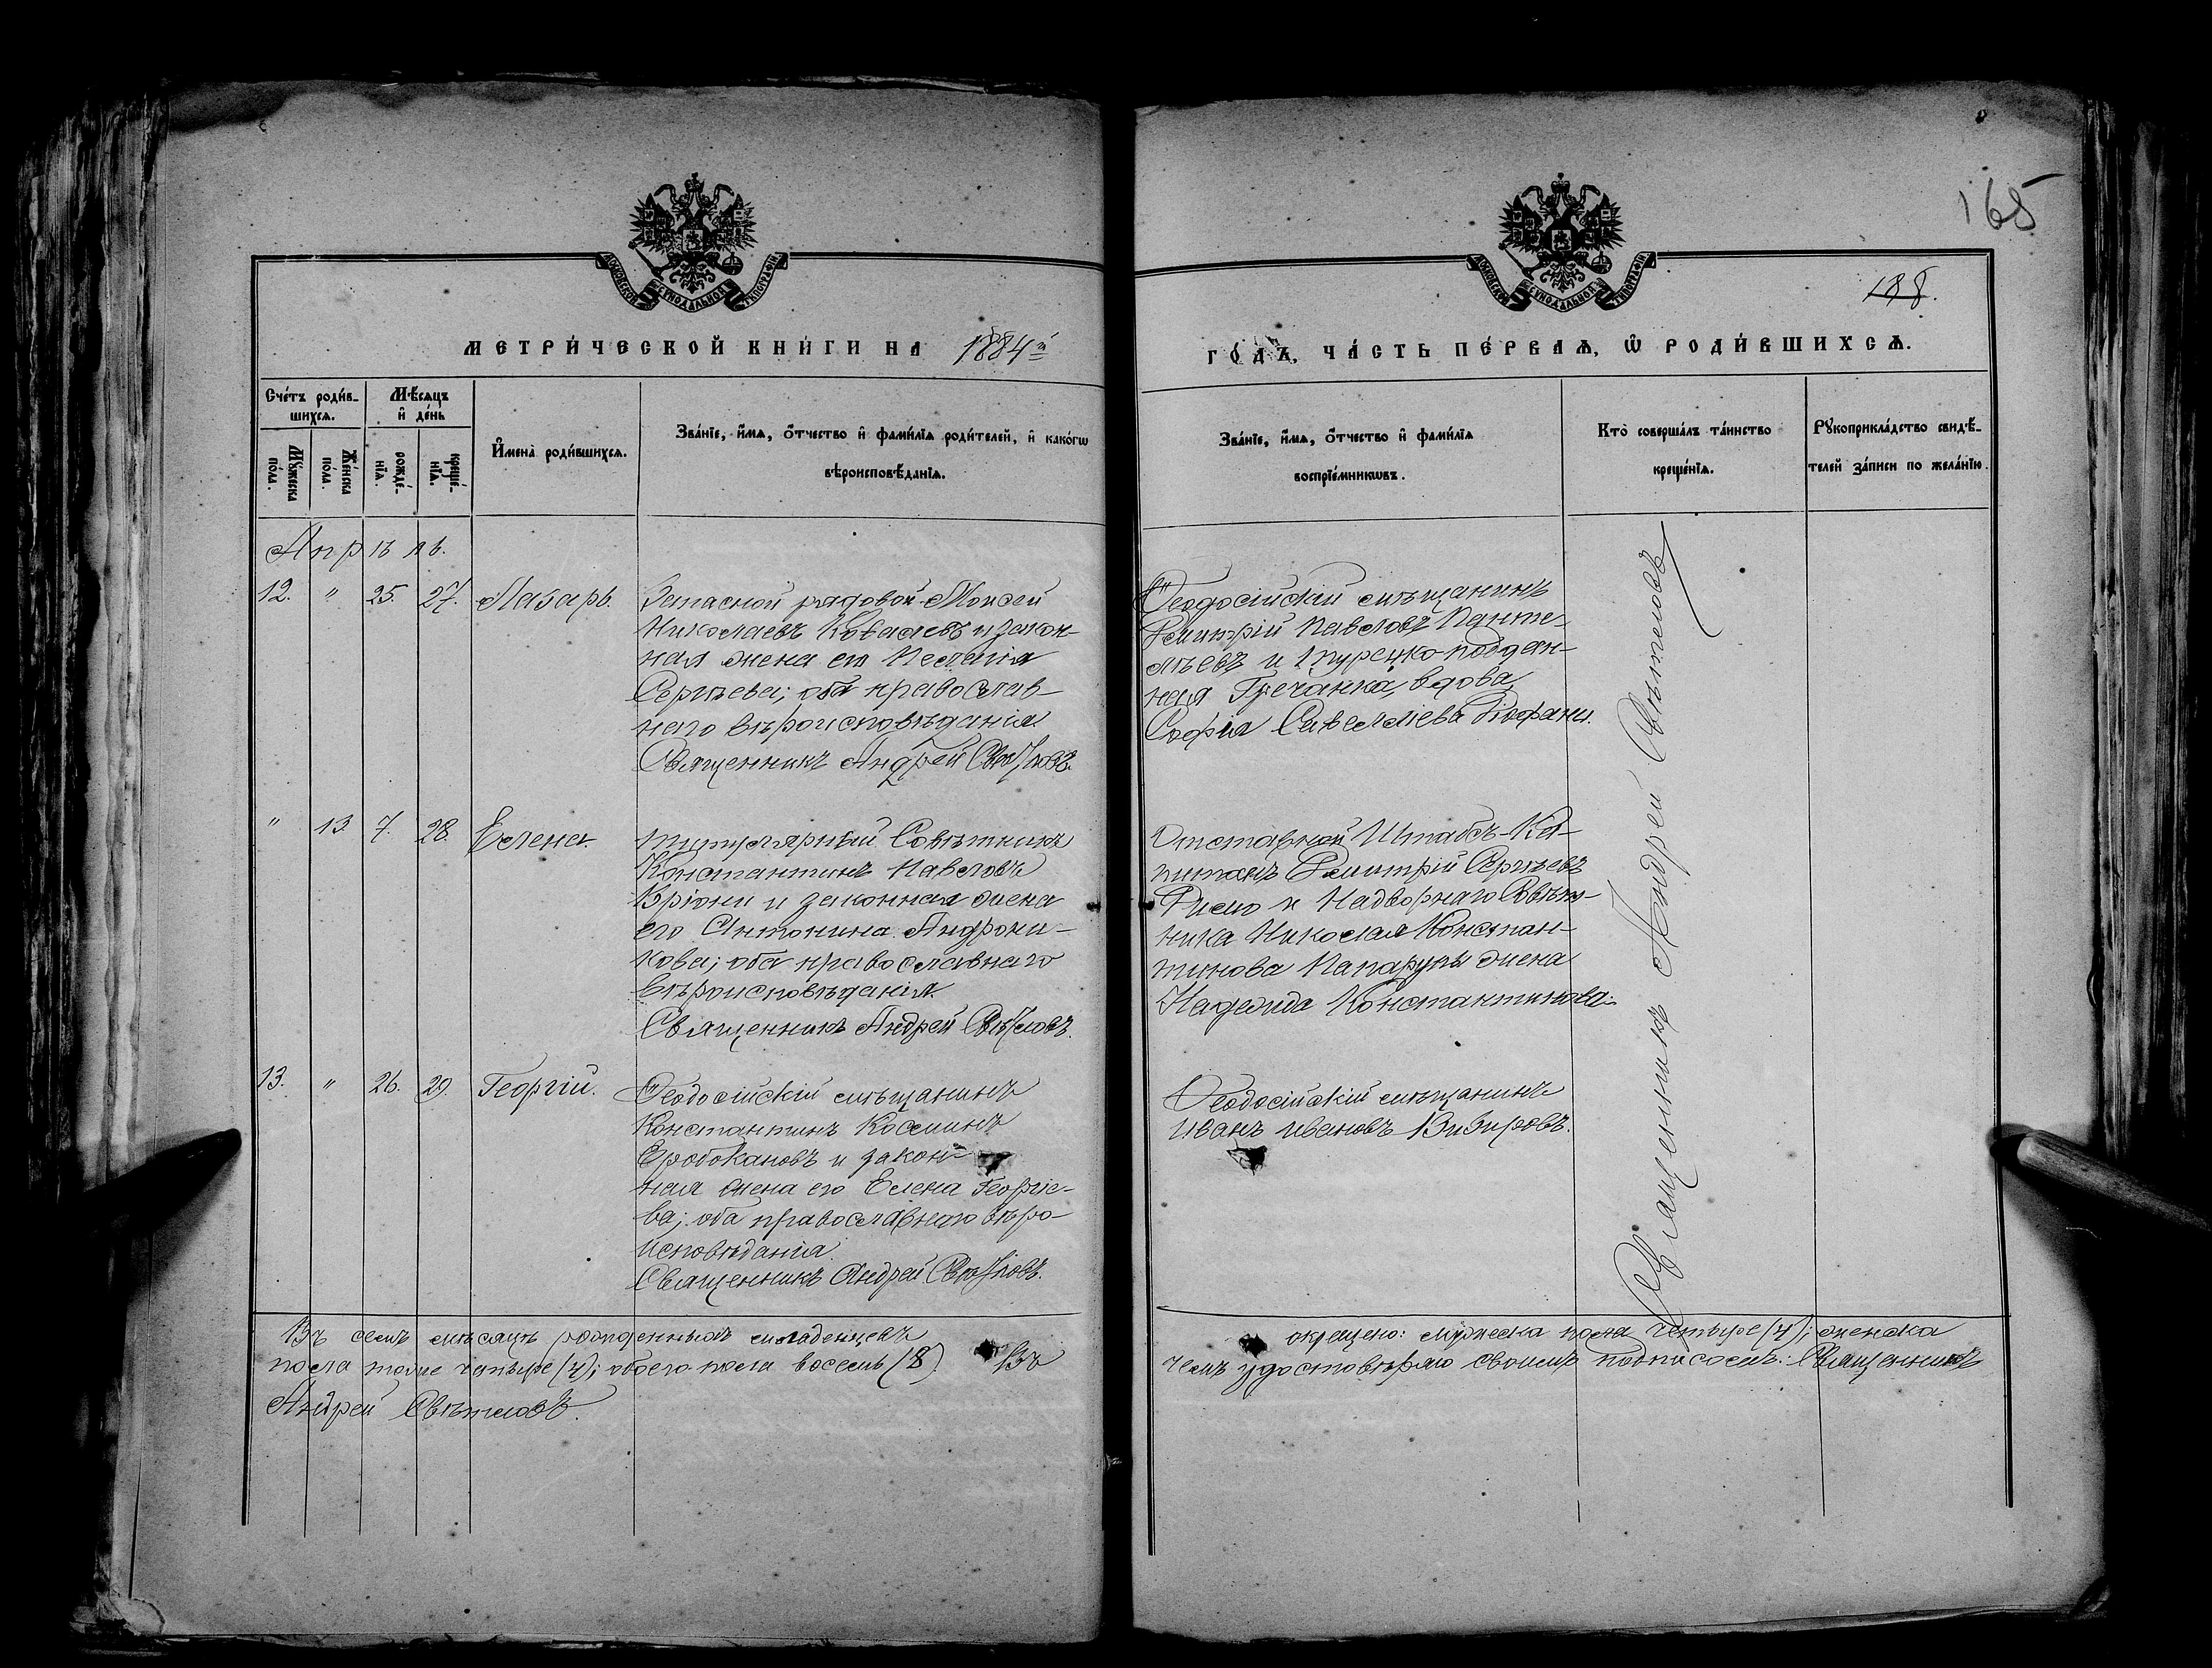 165
188.
МОСКОВСКОЙ СѴНОДАЛЬНОЙ ТИПОГРАФІИ
МОСКОВСКОЙ СѴНОДАЛЬНОЙ ТИПОГРАФІИ
МЕТРИ́ЧЕСКОЙ КНИ́ГИ НА 1884й
ГО́ДЪ, ЧА́СТЬ ПЕ́РВАѦ, Ѿ РОДИ́ВШИХСѦ.
Сче́тъ роди́в-
шихсѧ.
Мꙋ́жеска по́ла.
Же́нска по́ла.
Мѣ́сѧцъ
и҆ де́нь
рожде́-нїѧ.
креще́-нїѧ.
И҆мена̀ роди́вшихсѧ.
Зва́нїе, и҆́мѧ, ѻ҆́тчество и҆ фами́лїѧ роди́телей, и҆ како́гѡ
вѣроисповѣ́данїѧ.
Зва́нїе, и҆́мѧ, ѻ҆́тчество и҆ фами́лїѧ
воспрїе́мникѡвъ.
Кто̀ соверша́лъ та́инство
креще́нїѧ.
Рꙋкоприкла́дство свидѣ́-
телей за́писи по жела́нїю.
Апрѣль.
12. " 25. 27. Лазарь.
Запасной рядовой Моисей
Николаевъ Ковалевъ и закон-
ная жена его Пелагія
Сергѣева; оба православ-
наго вѣроисповѣданія.
Священникъ Андрей Свѣтловъ.
Ѳеодосійскій мѣщанинъ
Димитрій Павловъ Панте-
лѣевъ и турецко-поддан-
ная Гречанка, вдова,
Софія Савелліева
" 13. 7. 28. Елена.
Титулярный Совѣтникъ
Константинъ Павловъ
Кріони и законная жена
его Антонина Андрони-
кова; оба православнаго
вѣроисповѣданія.
Священникъ Андрей Свѣтловъ.
Отставной Штабсъ-Ка-
питанъ Димитрій Сергѣевъ
и Надворнаго Совѣт-
ника Николая Констан-
тинова Папарупы жена
Надежда Константинова.
13. " 26. 29. Георгій.
Ѳеодосійскій мѣщанинъ
Константинъ Косминъ
Еробокановъ и закон-
ная жена его Елена Георгіе-
ва; оба православнаго вѣро-
исповѣданія.
Священникъ Андрей Свѣтловъ.
Ѳеодосійскій мѣщанинъ
Иванъ Ивановъ Визировъ.
Священникъ Андрей Свѣтловъ
Въ семъ мѣсяцѣ рожденныхъ младенцевъ окрещено: мужеска пола четыре (4); женска
пола тоже четыре (4); обоего пола восемь (8). Въ чемъ удостовѣряю своимъ подписомъ: Священникъ
Андрей Свѣтловъ.